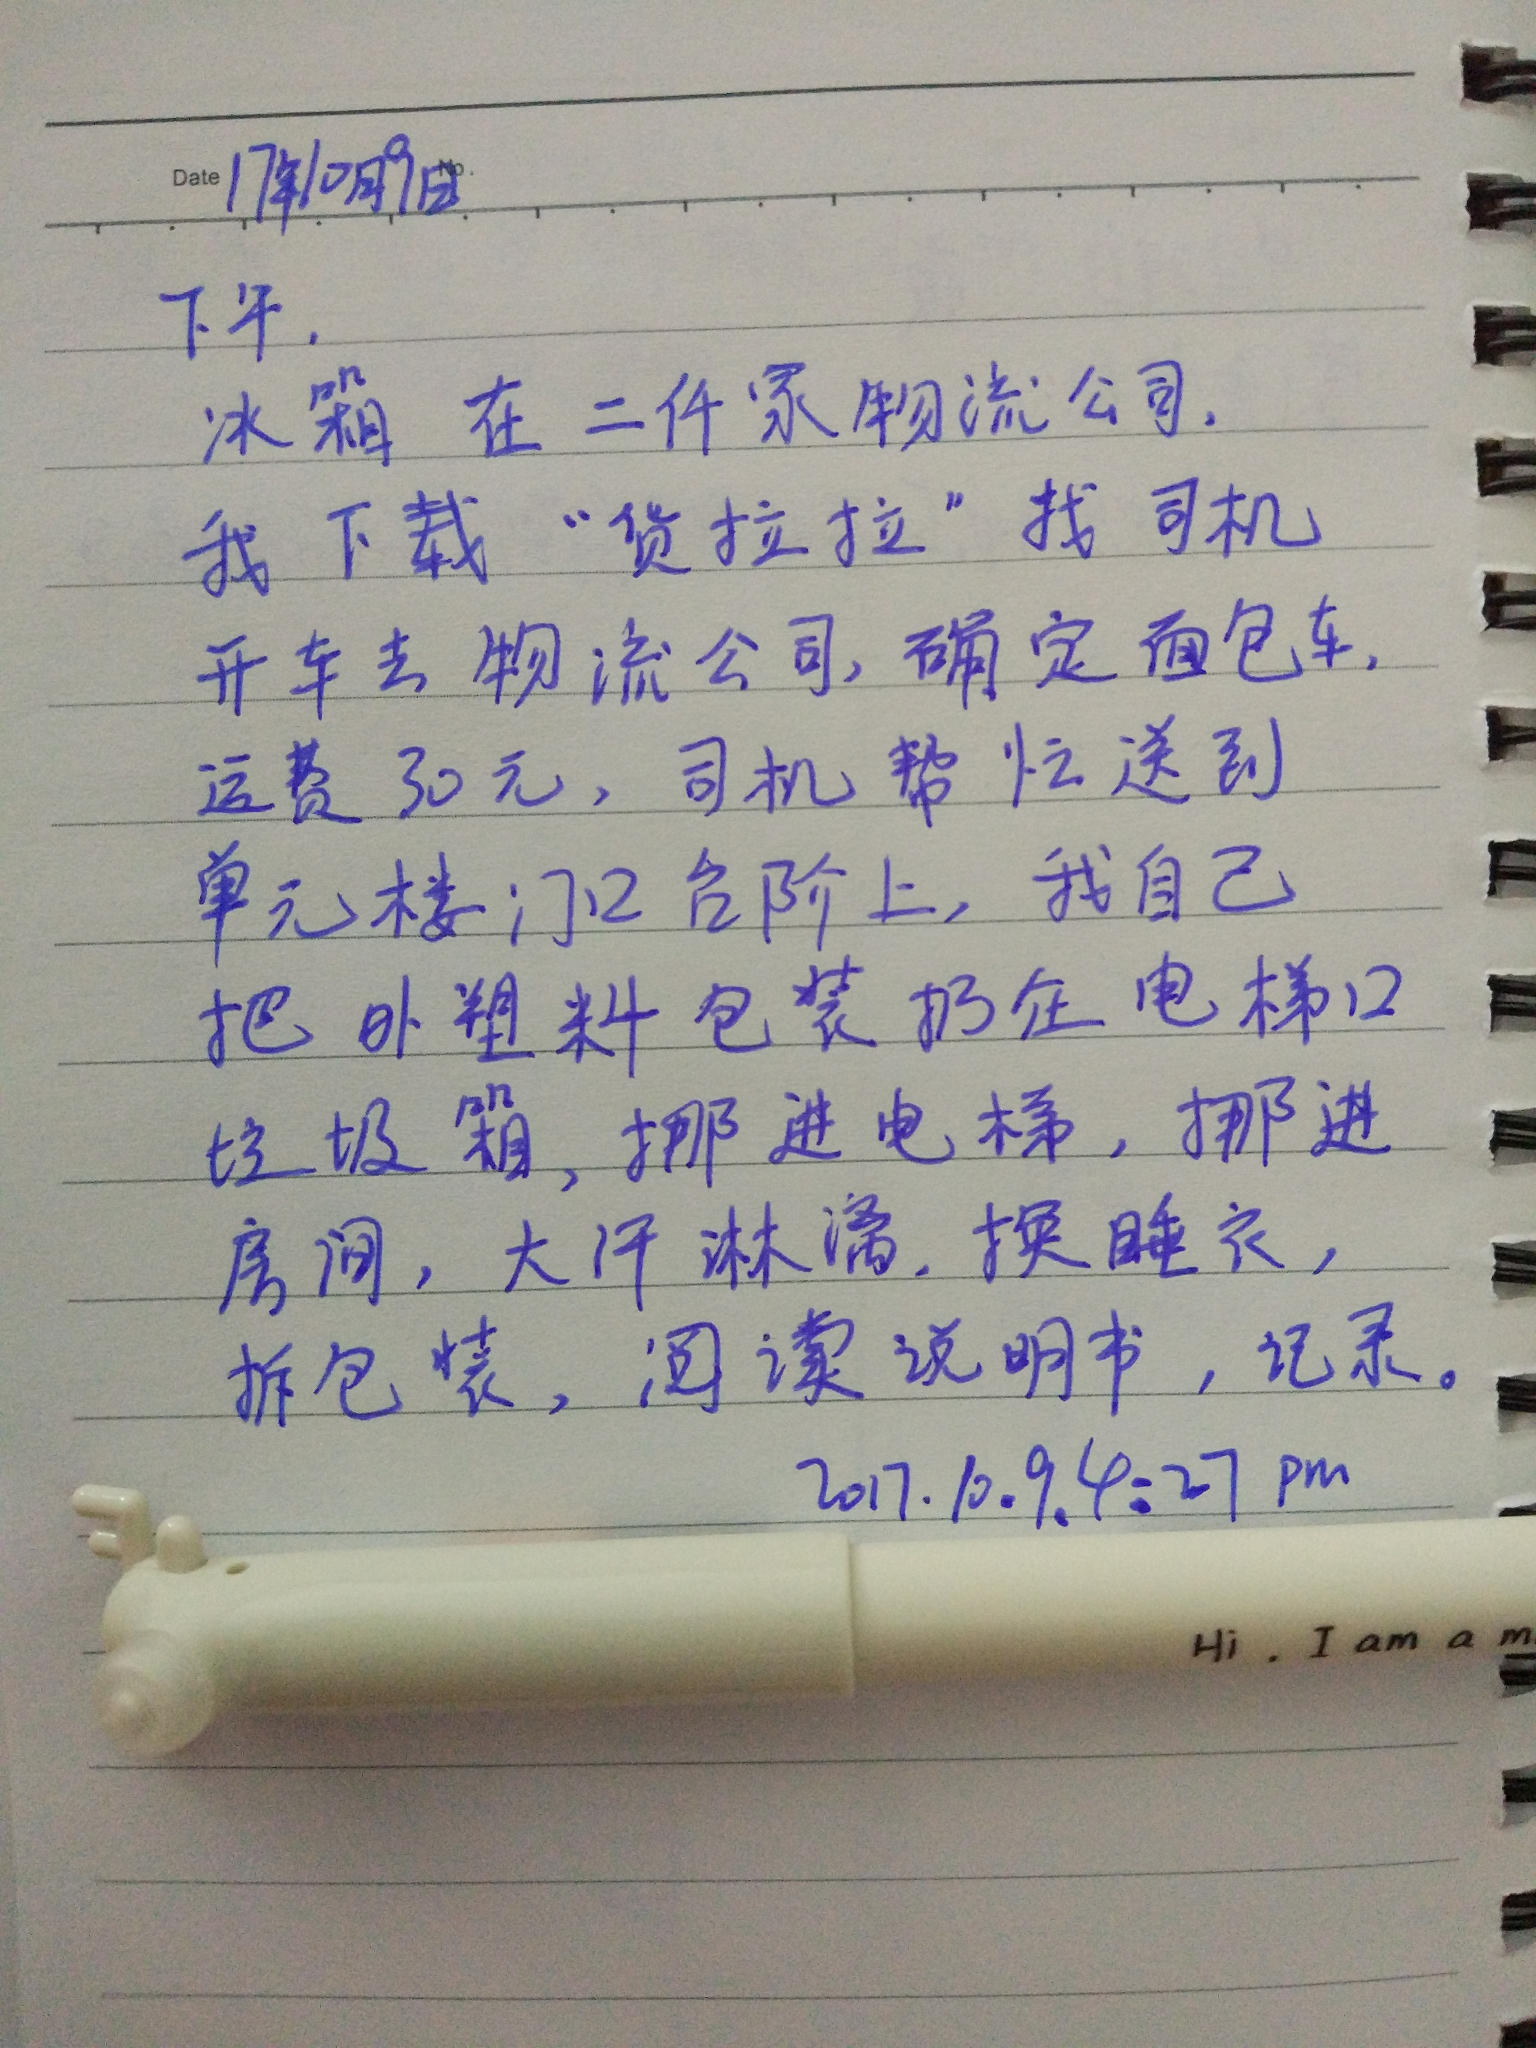 Date 17年10月9日 No.
下午.
冰箱 在 二仟家物流公司.
我下载“货拉拉”找司机
开车去物流公司,确定面包车.
运费30元,司机帮忙送到
单元楼门口台阶上,我自己
把外塑料包装扔在电梯口
垃圾箱,挪进电梯,挪进
房间,大汗淋漓.换睡衣,
拆包装,阅读说明书,记录。
2017.10.9.4:27 pm
Hi . I am a m